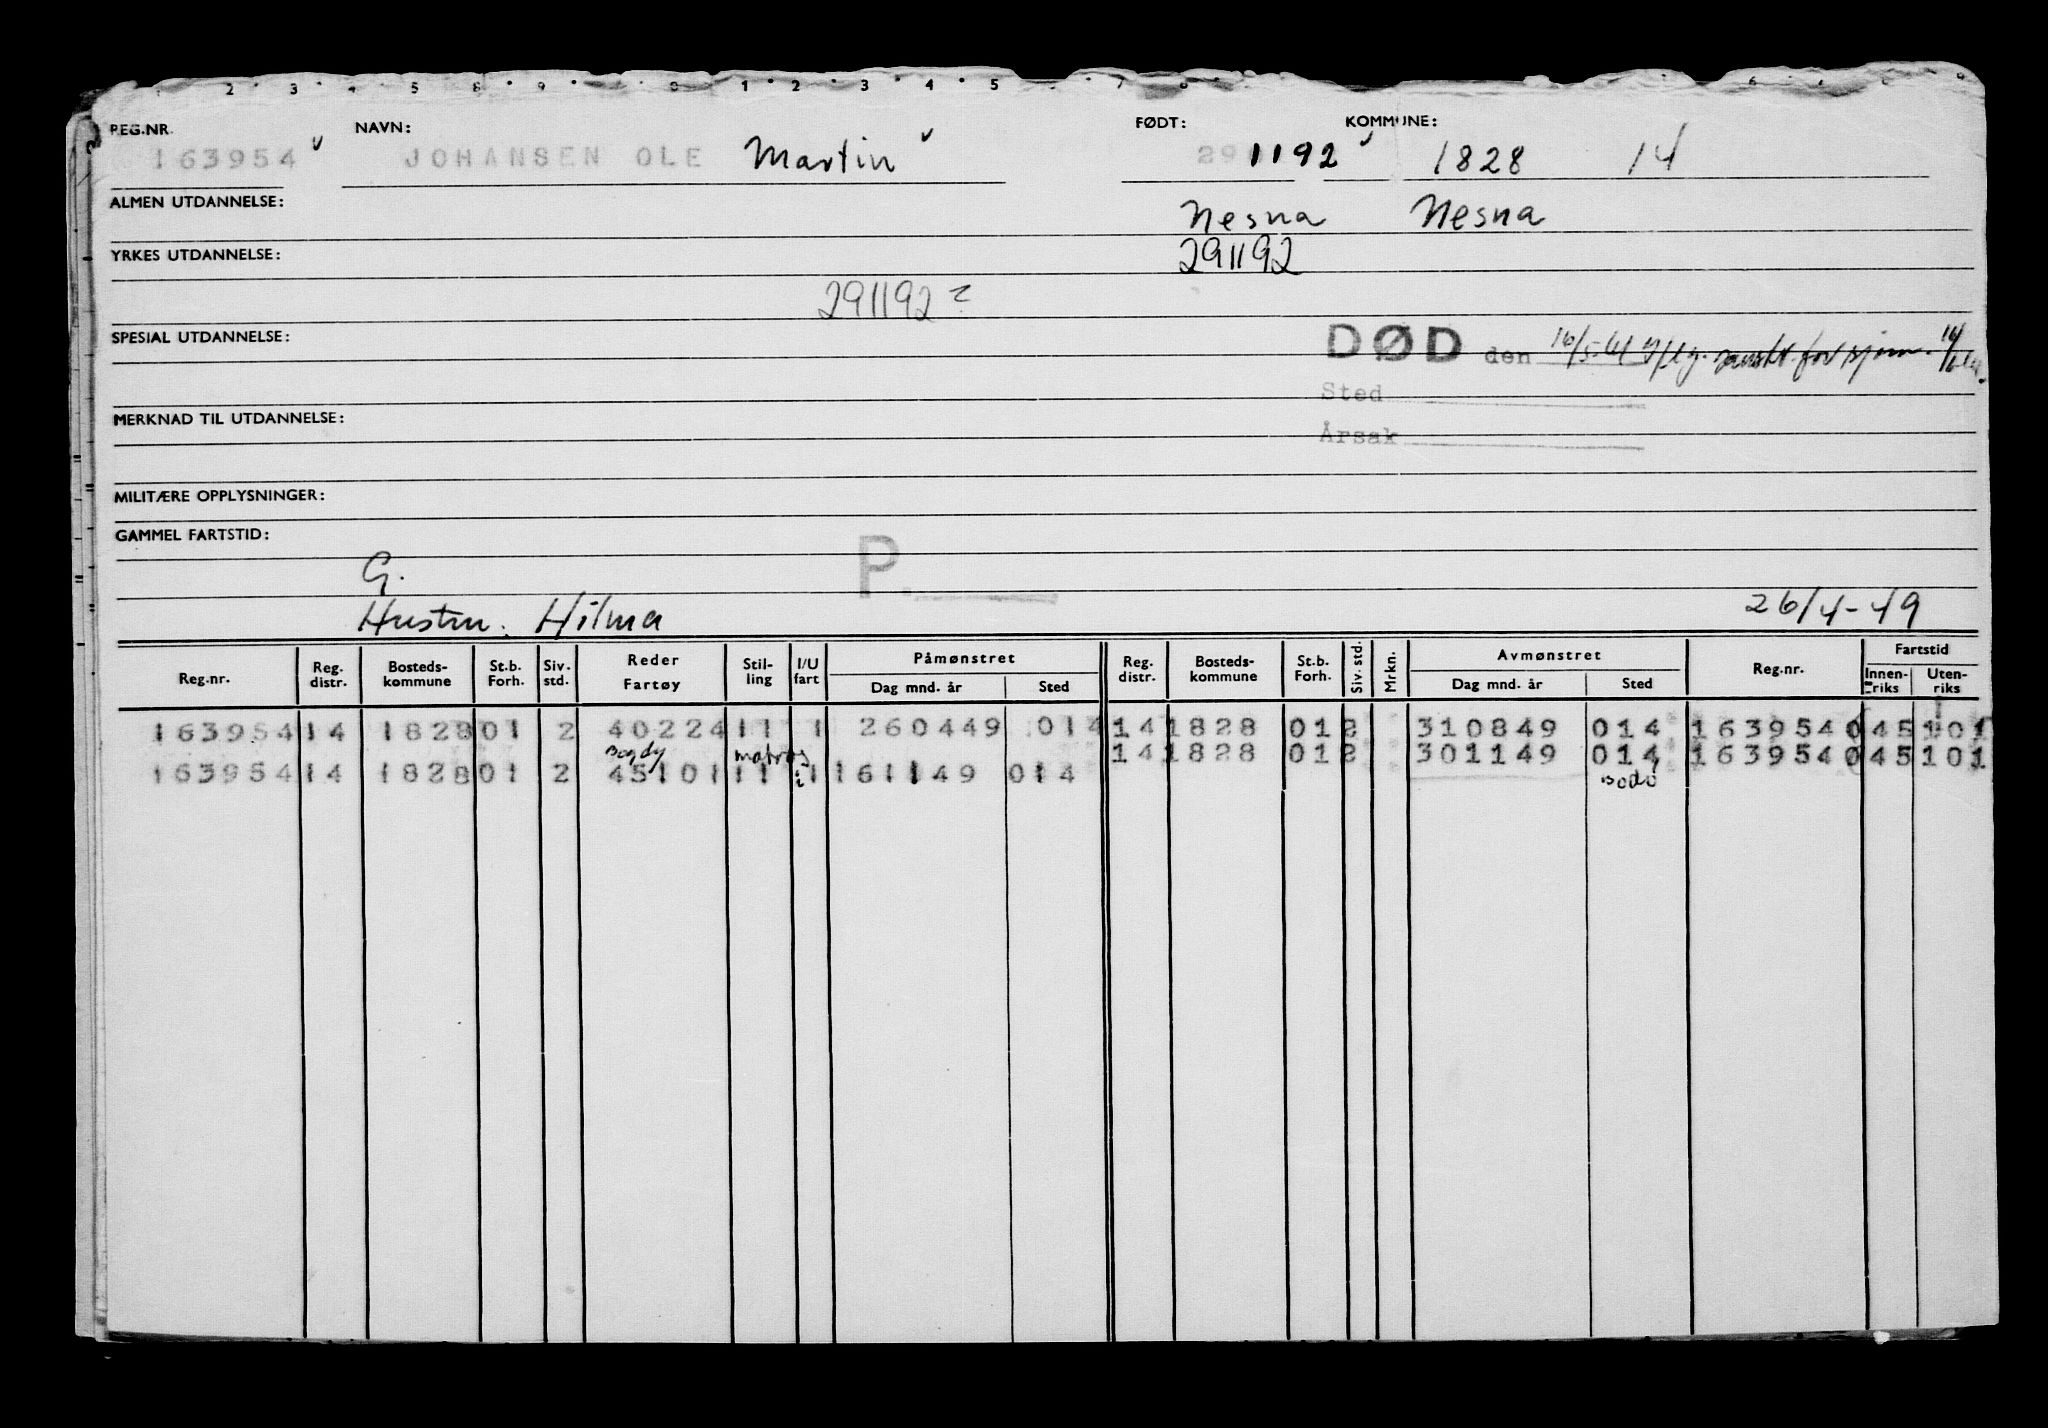 REG.NR. NAVN: FØDT: KOMMUNE:
163954 JOHANSEN OLE Martin 291192 1828 14
ALMEN UTDANNELSE: Nesna Nesna
YRKES UTDANNELSE: 291192
291192 ?
SPESIAL UTDANNELSE: DØD den 16/5-61
Sted
MERKNAD TIL UTDANNELSE:
Årsak
MILITÆRE OPPLYSNINGER:
GAMMEL FARTSTID:
P.
G.
Hustru. Hilma 26/4-49
Reg.nr. Reg. distr. Bosteds- kommune St.b. Forh. Siv. std. Reder Fartøy Stil- ling I/U fart Påmønstret Dag mnd. år Sted Reg. distr. Bosteds- kommune St.b. Forh. Siv. std. Mrkn. Avmønstret Dag mnd. år Sted Reg.nr. Fartstid Innen- riks Uten- riks
163954 14 1828 01 2 40224 11 1 260449 014 14 1828 01 2 310849 014 163954 045 101
matros 14 1828 01 2 301149 014 163954 045 101
163954 14 1828 01 2 45101 11 1 161149 014 Bodø
i